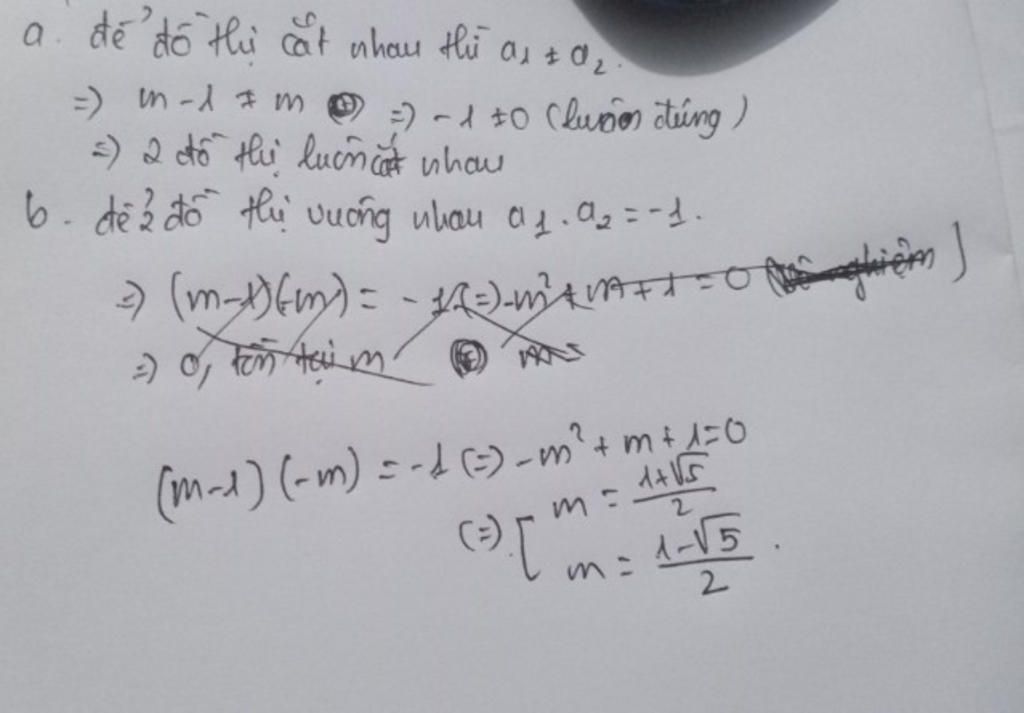 a. để đồ thị cắt nhau thì a₁ ≠ a₂.
=) m - 1 ≠ m =) - 1 ≠ 0 (luôn đúng)
=) 2 đồ thị luôn cắt nhau
b. để 2 đồ thị vuông nhau a₁ . a₂ = -1.
=) (m-1)(-m) = - 1 (=) -m² + m + 1 = 0 (vô nghiệm)
=) 0, tồn tại m
(m-1) (-m) = -1 (=) -m² + m + 1 = 0
(=) [ m = (1+√5)/2
m = (1-√5)/2 .